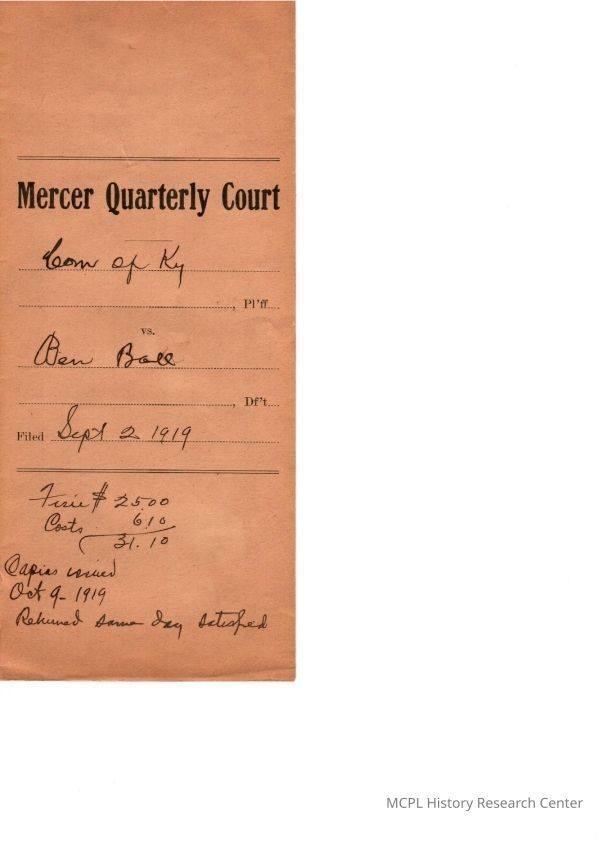 Mercer Quarterly Court
Com of Ky
, Pl'ff
vs.
Ben Ball
, Df't
Filed Sept 2 1919
Fine $ 25.00
Costs 6.10
31.10
Capias issued
Oct 9-1919
Returned same day satisfied
MCPL History Research Center